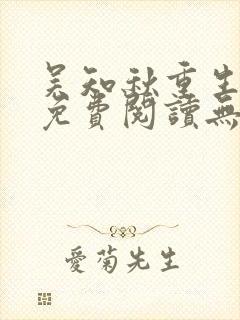 吴知秋重生
免費閱讀無
愛菊先生